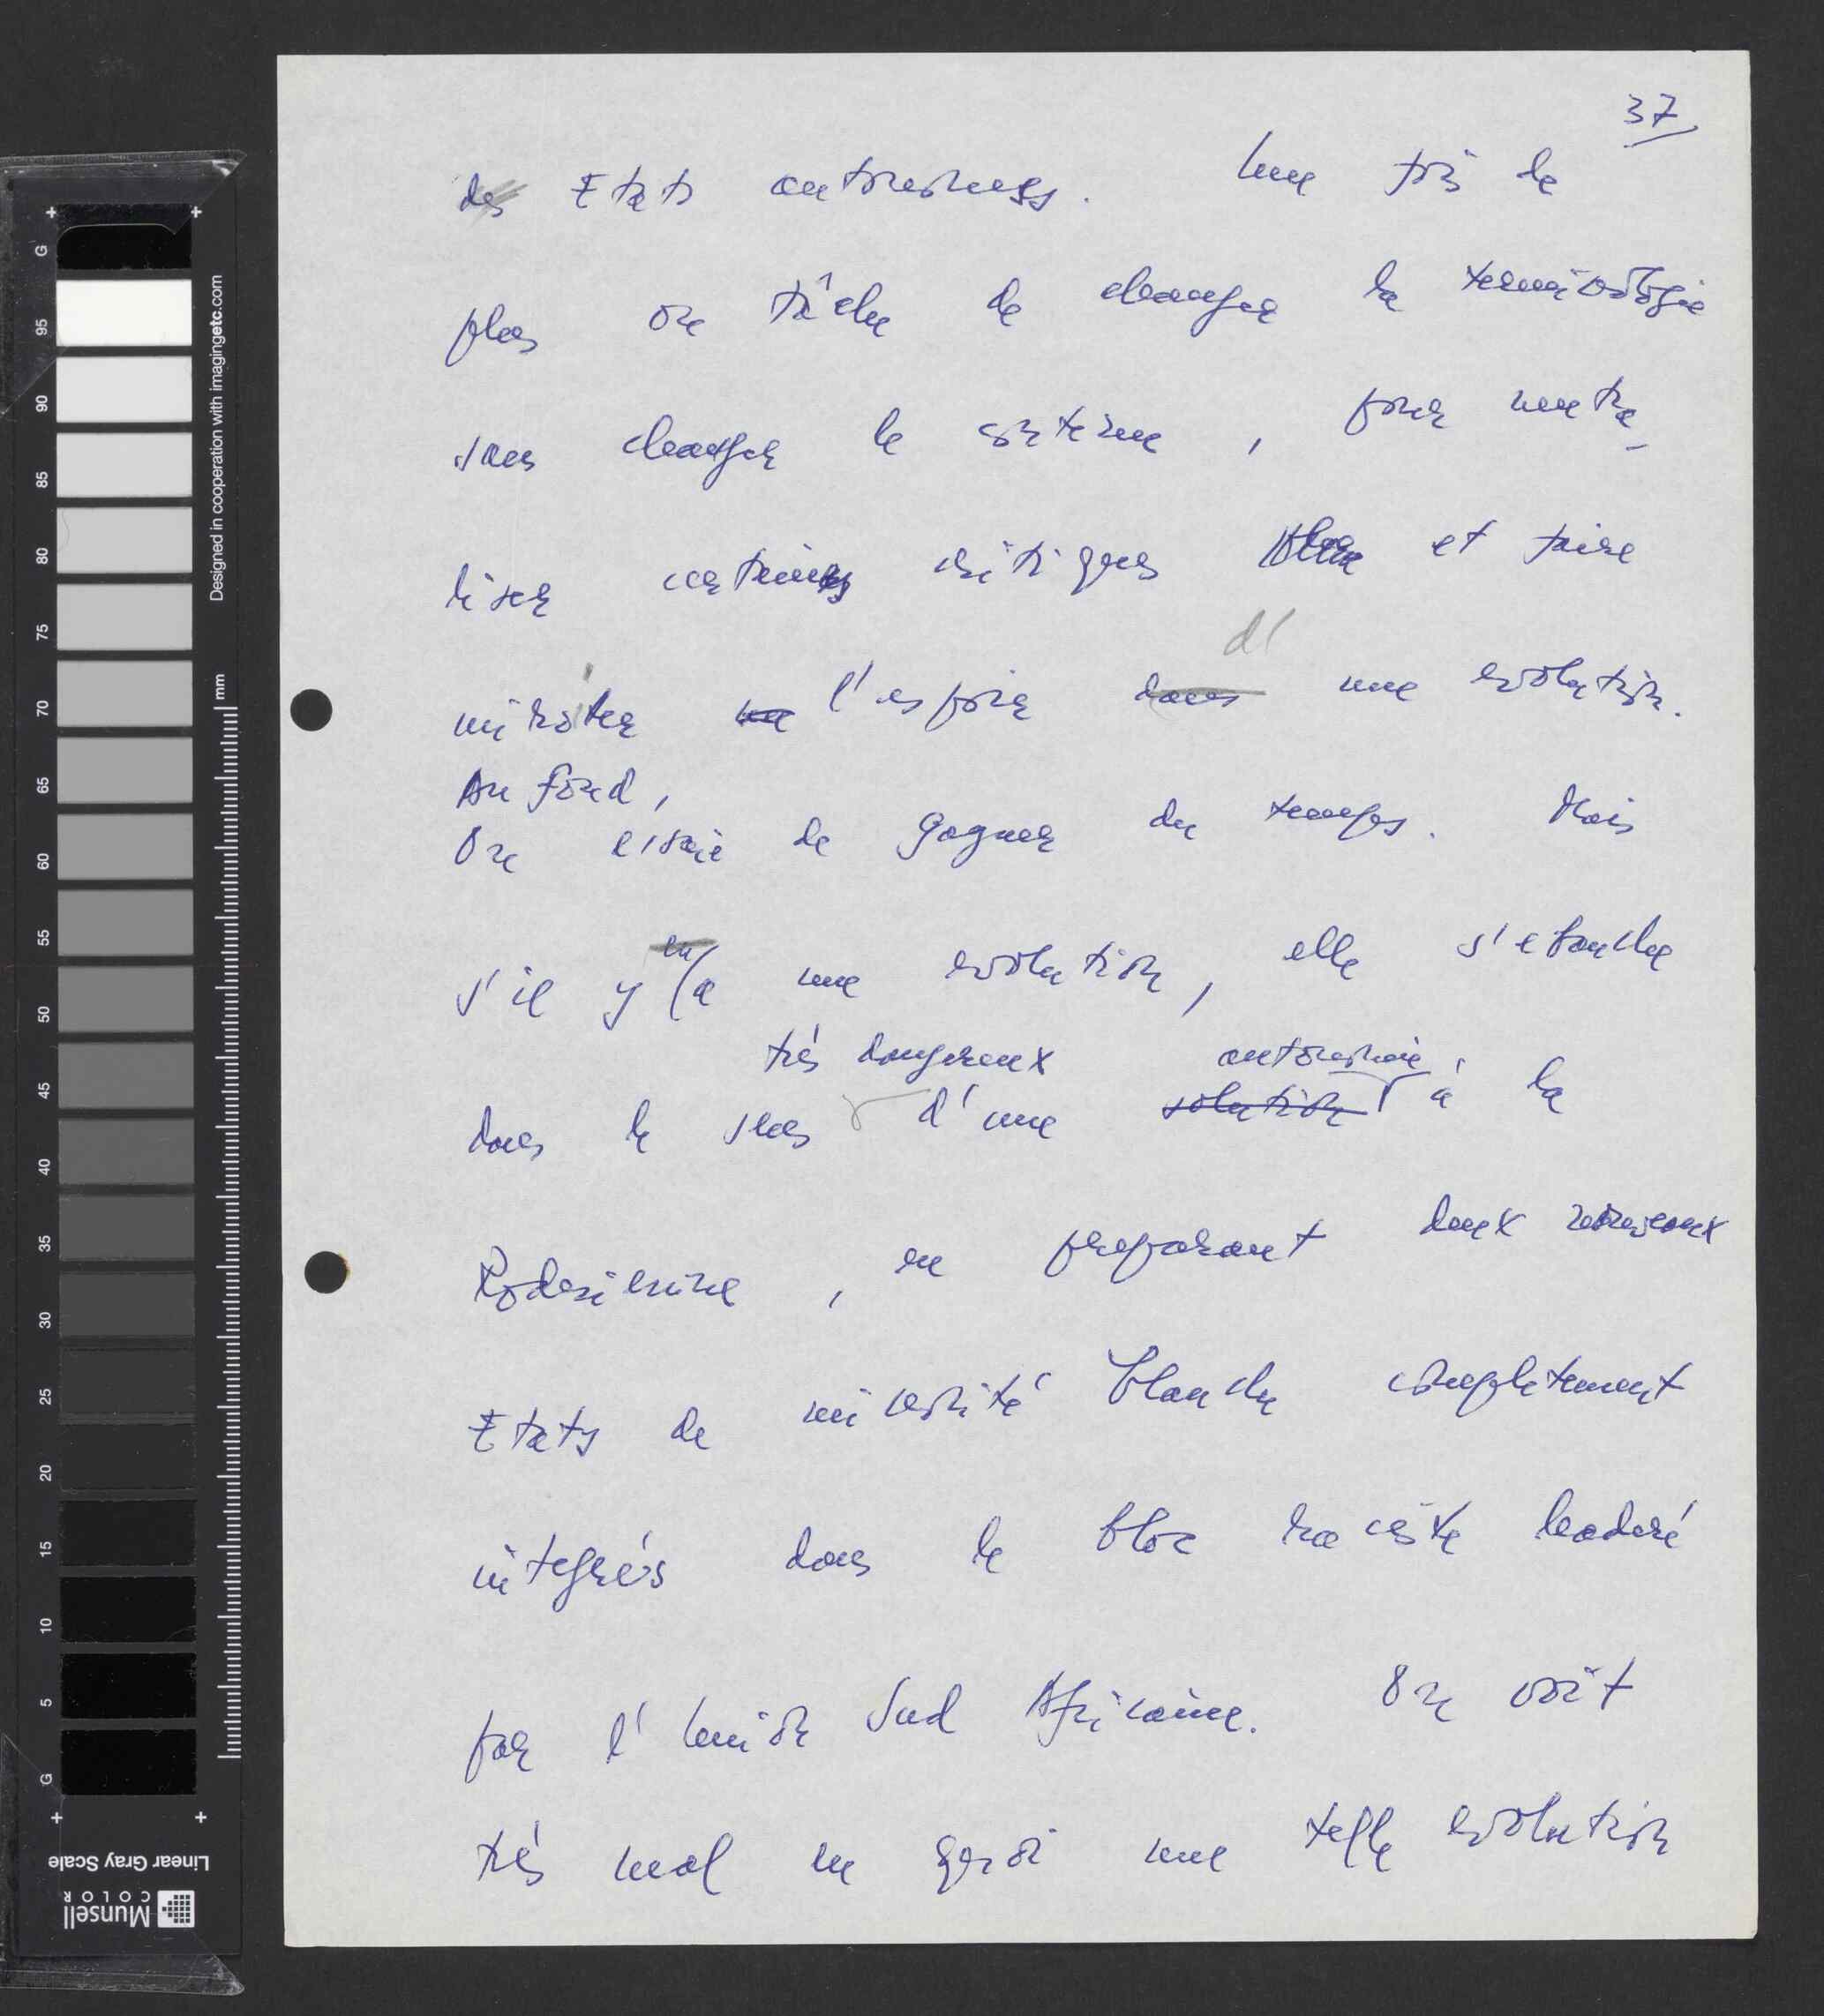 37
des Etats autonomes. Une fois de
plus on tâche de changer la terminologie
sans changer le système, pour neutra-
liser certaines critiques et faire
miroiter l'espoir dans d' une evolution.
Au fond,
On essaie de gagner du temps. Mais
s'il y en a une evolution, elle s'ebauche
très dangereux autonomie
dans le sens d'une solution à la
Rodesienne, en preparant deux nouveaux
Etats de minorité blanche completement
integrés dans le bloc raciste leaderé
par l'Union Sud Africaine. On voit
très mal en quoi une telle evolution
G 95 90 85 80 75 70 65 60 55 50 45 40 35 30 25 20 15 10 5 G
Designed in cooperation with imagingetc.com
mm
Linear Gray Scale
Munsell
COLOR